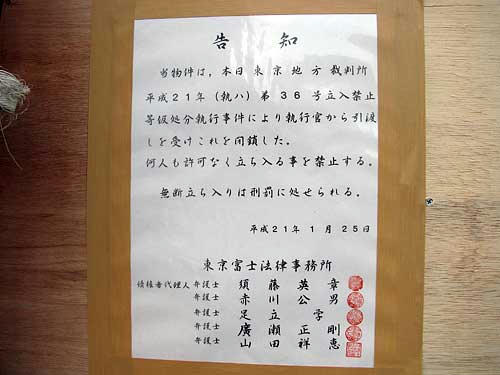 告知
当物件は，本日東京地方裁判所
平成21年（執ハ）第36号立入禁止
等仮処分執行事件により執行官から引渡
しを受けこれを閉鎖した。
何人も許可なく立ち入る事を禁止する。
無断立ち入りは刑罰に処せられる。
平成21年1月25日
東京富士法律事務所
債権者代理人 弁護士 須藤英章
弁護士 赤川公男
弁護士 足立学
弁護士 廣瀬正剛
弁護士 山田祥恵